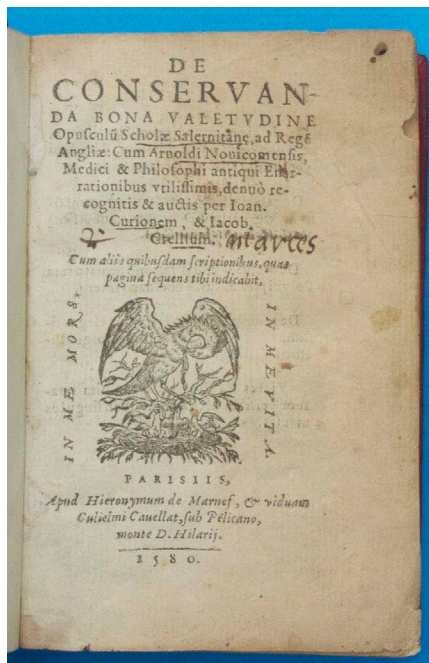 DE
CONSERVAN-
DA BONA VALETVDINE
Opusculũ Scholæ Salernitanę, ad Regẽ
Angliæ: Cum Arnoldi Nouicomensis,
Medici & Philosophi antiqui Enar-
rationibus vtilissimis, denuò re-
cognitis & auctis per Ioan.
Curionem, & Iacob.
Crellium.
Cum aliis quibusdam scriptionibus, quas
pagina sequens tibi indicabit.
IN ME MORS,
IN ME VITA.
PARISIIS,
Apud Hieronymum de Marnef, & viduam
Gulielmi Cauellat, sub Pelicano,
monte D. Hilarij.
1580.